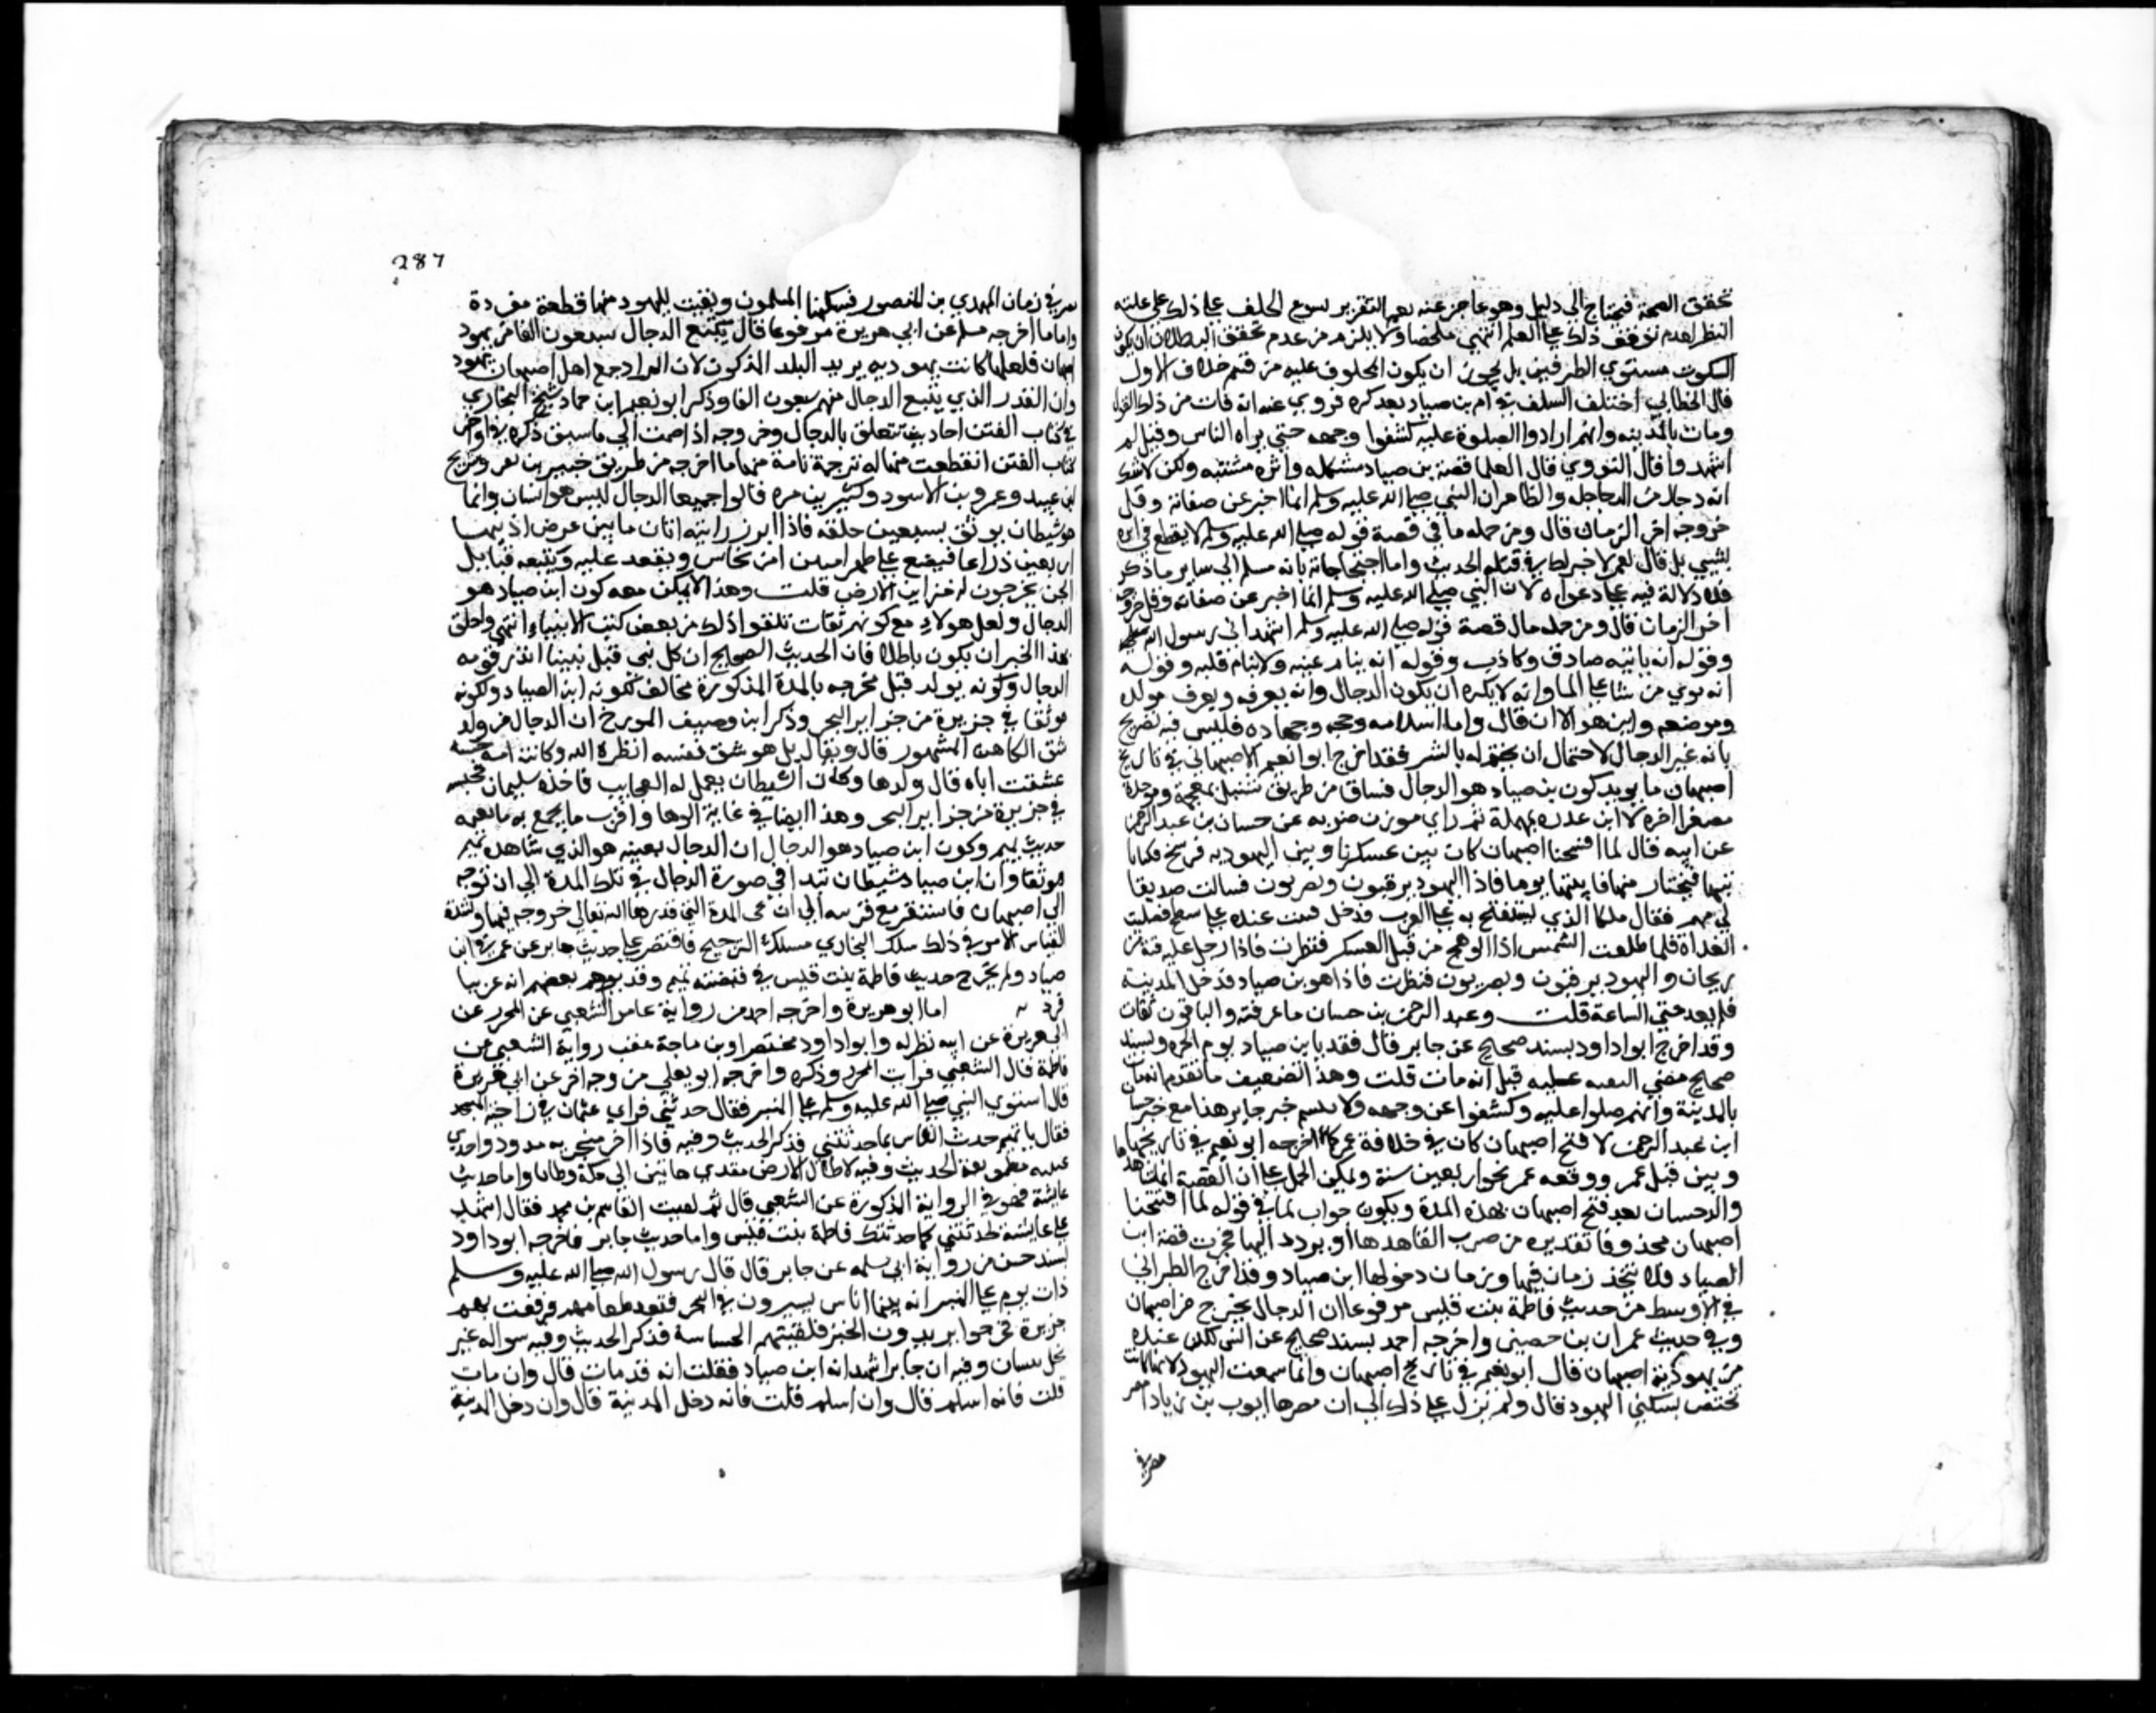 تحقق الصحة فيحتاج الى دليل وهو عاجز عنه نعم التقرير يسوغ الحلف على ذلك على غلبة
الظن لعدم توقف ذلك على العلم انتهى ملخصا ولا يلزم من عدم تحقق البطلان ان يكون
السكوت مستوي الطرفين بل يجوز ان يكون المحلوف عليه من قسم خلاف الاول
قال الخطابي اختلف السلف في امر بن صياد بعد كبره فروي عنه انه فات من ذلك القول
ومات بالمدينه وانهم ارادوا الصلوة عليه كشفوا وجهه حتى يراه الناس وقيل لهم
اشهدوا قال النووي قال العلما قصة بن صياد مشكله وامره مشتبه ولكن لا شك
انه دجال من الدجاجله والظاهر ان النبي صلى الله عليه وسلم انما اخبر عن صفاته وقال
خروجه اخر الزمان قال ومن جمله ما في قصة قوله صلى الله عليه وسلم لا يقطع في امره
بشي بل قال لعمر لا خير لك في قتله الحديث واما احتجاجاته بانه مسلم الى ساير ما ذكر
فلا دلالة فيه على دعواه لان النبي صلى الله عليه وسلم انما اخبر عن صفاته وقل خروجه
اخر الزمان قال ومن جمله مال قصة قوله صلى الله عليه وسلم اشهد اني رسول الله
وقوله انه ياتيه صادق وكاذب وقوله انه ينام عينه ولا ينام قلبه وقوله
انه يري عرشا على الما وانه لا يكره ان يكون الدجال وانه يعرفه ويعرف مولده
وموضعه واين هو الان قال واما اسلامه وحجه وجهاده فليس فيه تصريح
بانه غير الدجال لاحتمال ان يختم له بالشر فقد اخرج ابوا نعيم الاصبهاني في تاريخ
اصبهان ما يويد كون بن صياد هو الدجال فساق من طريق شبيل بمعجمة وموحدة
مصغرا اخره لا ابن عذره بمهملة ثم راي موزن ضربه عن حسان بن عبد الرحمن
عن ابيه قال لما افتتحنا اصبهان كان بين عسكرنا وبين اليهوديه فرسخ فكنا
ناتيها فنختار منها فاتيتها يوما فاذا اليهود يرقبون ويضربون فسالت صديقا
لي منهم فقال ملكنا الذي نستفتح به على العرب فدخل فبت عنده على سطح فصليت
الغداة فلما طلعت الشمس اذا الوهج من قبل العسكر فنظرت فاذا رجل عليه قبة من
ريحان واليهود يرقبون ويضربون فنظرت فاذا هو بن صياد فدخل المدينة
فلم يعد حتى الساعة قلت وعبد الرحمن بن حسان ما عرفته والباقون ثقات
وقد اخرج ابوا داود بسند صحيح عن جابر قال فقدنا بن صياد يوم الحره وبسند
صحيح مضي قيل انه مات قلت وهذا الضعيف ما تقدم انه مات
بالمدينة وانهم صلوا عليه وكشفوا عن وجهه ولا خبر جابر هذا مع خبر حسان
ابن عبد الرحمن لان فتح اصبهان كان في خلافة عمر كما اخرجه ابو نعيم في تاريخها
وبين قتل عمر ووقعه عمر نحو اربعين سنة ويمكن الحمل على ان القصة انما شاهدها
والد حسان بعد فتح اصبهان بهذه المدة ويكون جواب لما في قوله لما افتتحنا
اصبهان محذوفا تقديره صرت اتعاهدها او تردد اليها فجرت قصة ابن
الصياد فلا يتحد زمان فتحها وزمان دخولها ابن صياد وقد اخرج الطبراني
في الاوسط من حديث فاطمة بنت قيس مرفوعا ان الدجال يخرج من اصبهان
وفي حديث عمران بن حصين واخرجه احمد بسند صحيح عن انس لكن عنده
من يهودية اصبهان قال ابو نعيم في تاريخ اصبهان وانما سميت اليهود لانها كانت
تختص بسكنى اليهود قال ولم تزل على ذلك الى ان مصرها ايوب بن زياد امير
مصر في
287
مصر في زمان المهدي بن المنصور فسكنها المسلمون وبقيت لليهود منها قطعة مفردة
واما ما اخرجه مسلم عن ابي هريرة مرفوعا قال يتبع الدجال سبعون الفا من يهود
اصبهان فلعلها كانت يهوديه يريد البلد المذكور لان المراد جمع اهل اصبهان يهود
وان القدر الذي يتبع الدجال منهم سبعون الفا وذكر ابو نعيم ابن حماد شيخ البخاري
في كتاب الفتن احاديث تتعلق بالدجال وخروجه اذا ضمت الى ما سبق ذكره في اواخر
كتاب الفتن انتظمت منها له ترجمة تامة منها ما اخرجه من طريق جبير بن نفير وشريح
ابن عبيد وعمرو بن الاسود وكثير بن مره قالوا جميعا الدجال ليس هو انسان وانما
هو شيطان يوثق بسبعين حلقه فاذا ابرز راسه اتان ما بين عرض اذنيها
اربعين ذراعا فيضع على ظهر منبرا من نحاس ويقعد عليه وتتبعه قبايل
الجن يخرجون له خزاين الارض قلت وهذا لا يمكن معه كون ابن صياد هو
الدجال ولعل هولا مع كونهم ثقات تلقوا ذلك من بعض كتب الانبياء انتهى
هذا الخبر ان يكون باطلا فان الحديث الصحيح ان كل نبي قبل نبينا انذر قومه
الدجال وكونه يولد قبل مخرجه بالمدة المذكورة مخالف لكونه ابن الصياد ولكونه
موثقا في جزيرة من جزاير البحر وذكر ابن وصيف المورخ ان الدجال من ولد
شق الكاهن المشهور قال ويقال بل هو شق نفسه انظره الله وكانت امه جنيه
عشقت اباه قال ولدها وكان الشيطان يعمل له العجايب فاخذه سليمان فحبسه
في جزيرة من جزاير البحر وهذا ايضا في غاية الوها واقرب ما يجمع به ما تضمنه
حديث تميم وكون ابن صياد هو الدجال ان الدجال بعينه هو الذي شاهده تميم
موثقا وان ابن صياد شيطان تبدا في صورة الدجال في تلك المدة الى ان توجه
الى اصبهان فاستتر مع قرينه الى ان تجي المدة التي قدرها الله تعالى خروجه فيها ولشدة
التباس الامر في ذلك سلك البخاري مسلك الترجيح فاقتصر على حديث جابر عن عمر في ابن
صياد ولم يخرج حديث فاطمة بنت قيس في قصة تميم وقد توهم بعضهم انه غريبا
فرد اما ابو هريرة واخرجه احمد من رواية عامر الشعبي عن المحرر عن
ابي هريرة عن ابيه نظوله وابوا داود مختصرا وبن ماجة عقب رواية الشعبي عن
فاطمة قال الشعبي فرايت المحرر وذكره واخرجه ابو يعلى من وجه اخر عن ابي هريرة
قال استوي النبي صلى الله عليه وسلم على المنبر فقال حدثني فراي عثمان في ناحية المسجد
فقال يا تميم حدث الناس بما حدثتني فذكر الحديث وفيه فاذا احد منخريه ممدود واحدي
عينيه مطموسة الحديث وفيه لاطان الارض بقدمي هاتين الى مكة وطابا واما حديث
عايشة فهو في الرواية المذكورة عن الشعبي قال ثم لقيت القاسم بن محمد فقال اشهد
على عايشة لحدثتني كما حدثتك فاطمة بنت قيس واما حديث جابر فاخرجه ابو داود
بسند حسن من رواية ابي سلمه عن جابر قال قال رسول الله صلى الله عليه وسلم
ذات يوم على المنبر انه بينما اناس يسيرون في البحر فنفد طعامهم فرفعت لهم
جزيرة فخرجوا يريدون الخبز فلقيتهم الجساسة فذكر الحديث وفيه سواله عن
نخل بيسان وفيه ان جابرا شهد انه ابن صياد فقلت انه قد مات قال وان مات
قلت فانه اسلم قال وان اسلم قلت فانه دخل المدينة قال وان دخل المدينة